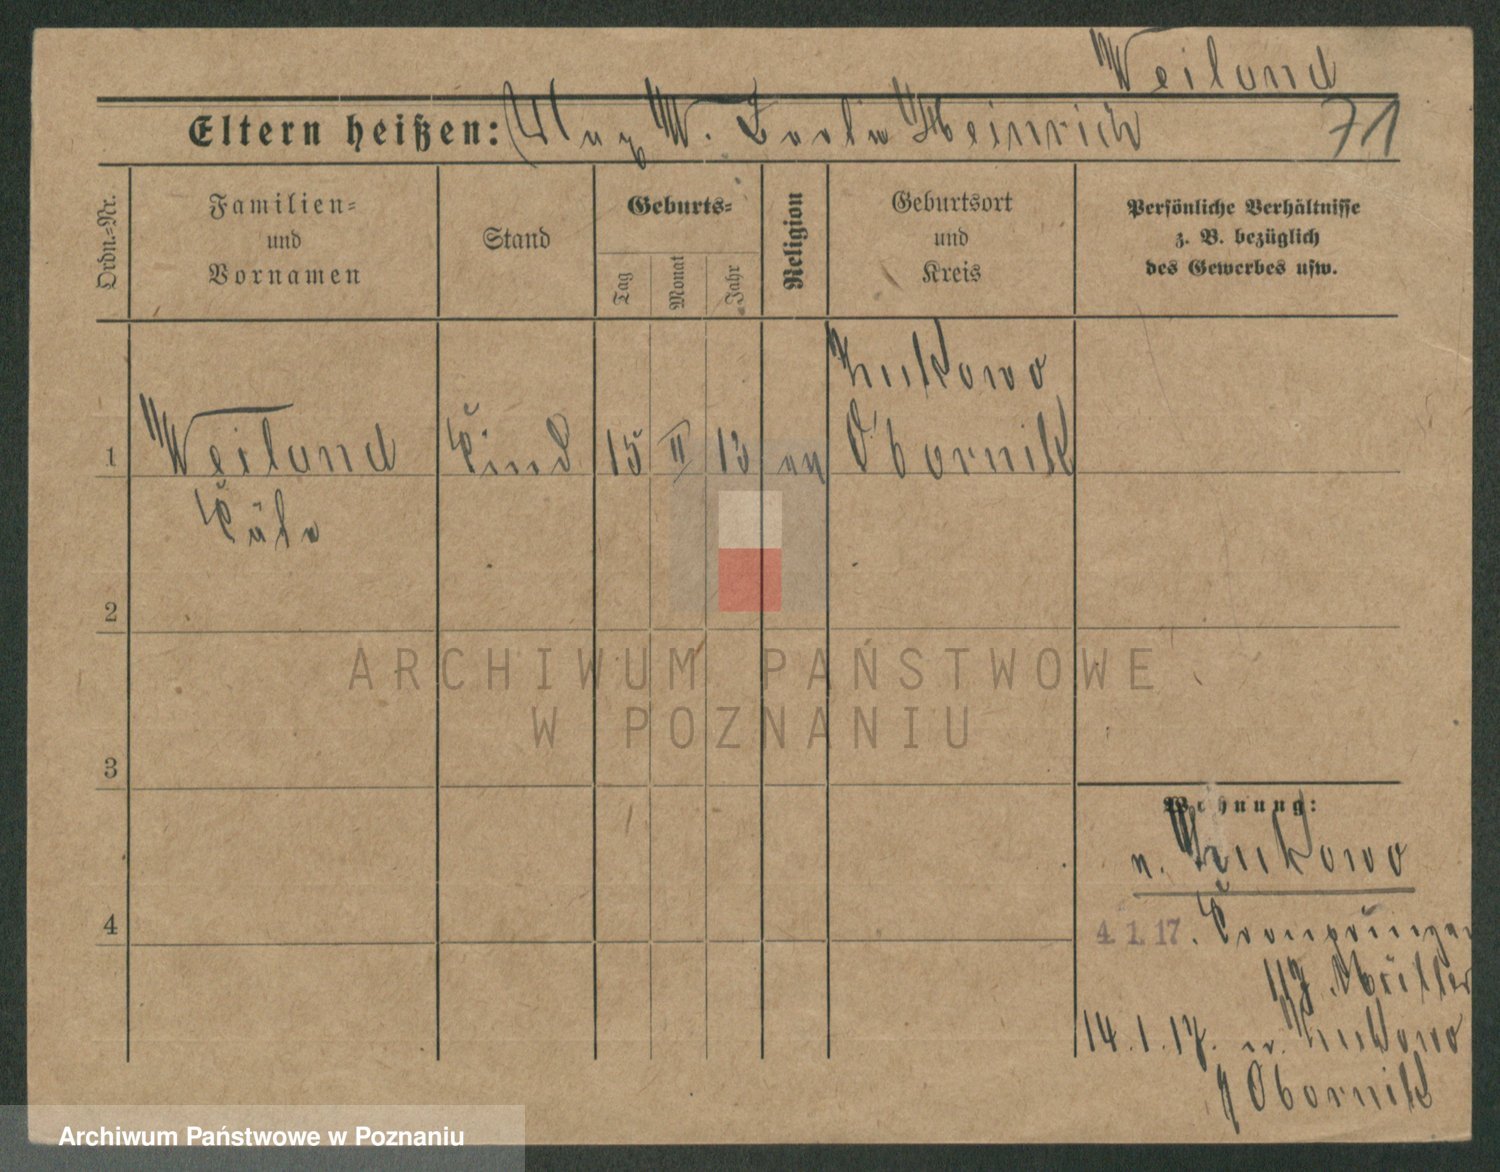 Weiland
Eltern heißen: W. Heinrich 71
Ordn.-Nr.
Familien-
und
Vornamen
Stand
Geburts-
Tag
Monat
Jahr
Religion
Geburtsort
und
Kreis
Persönliche Verhältnisse
z. B. bezüglich
des Gewerbes usw.
Zukowo
1 Weiland Kind 15 II 13 Obornik
Käte
2
3
4
Wohnung:
n. Zukowo
4. 1. 17. Kronprinzen
Müller
14. 1. 17. n. Zukowo
Obornik
ARCHIWUM PAŃSTWOWE
W POZNANIU
Archiwum Państwowe w Poznaniu